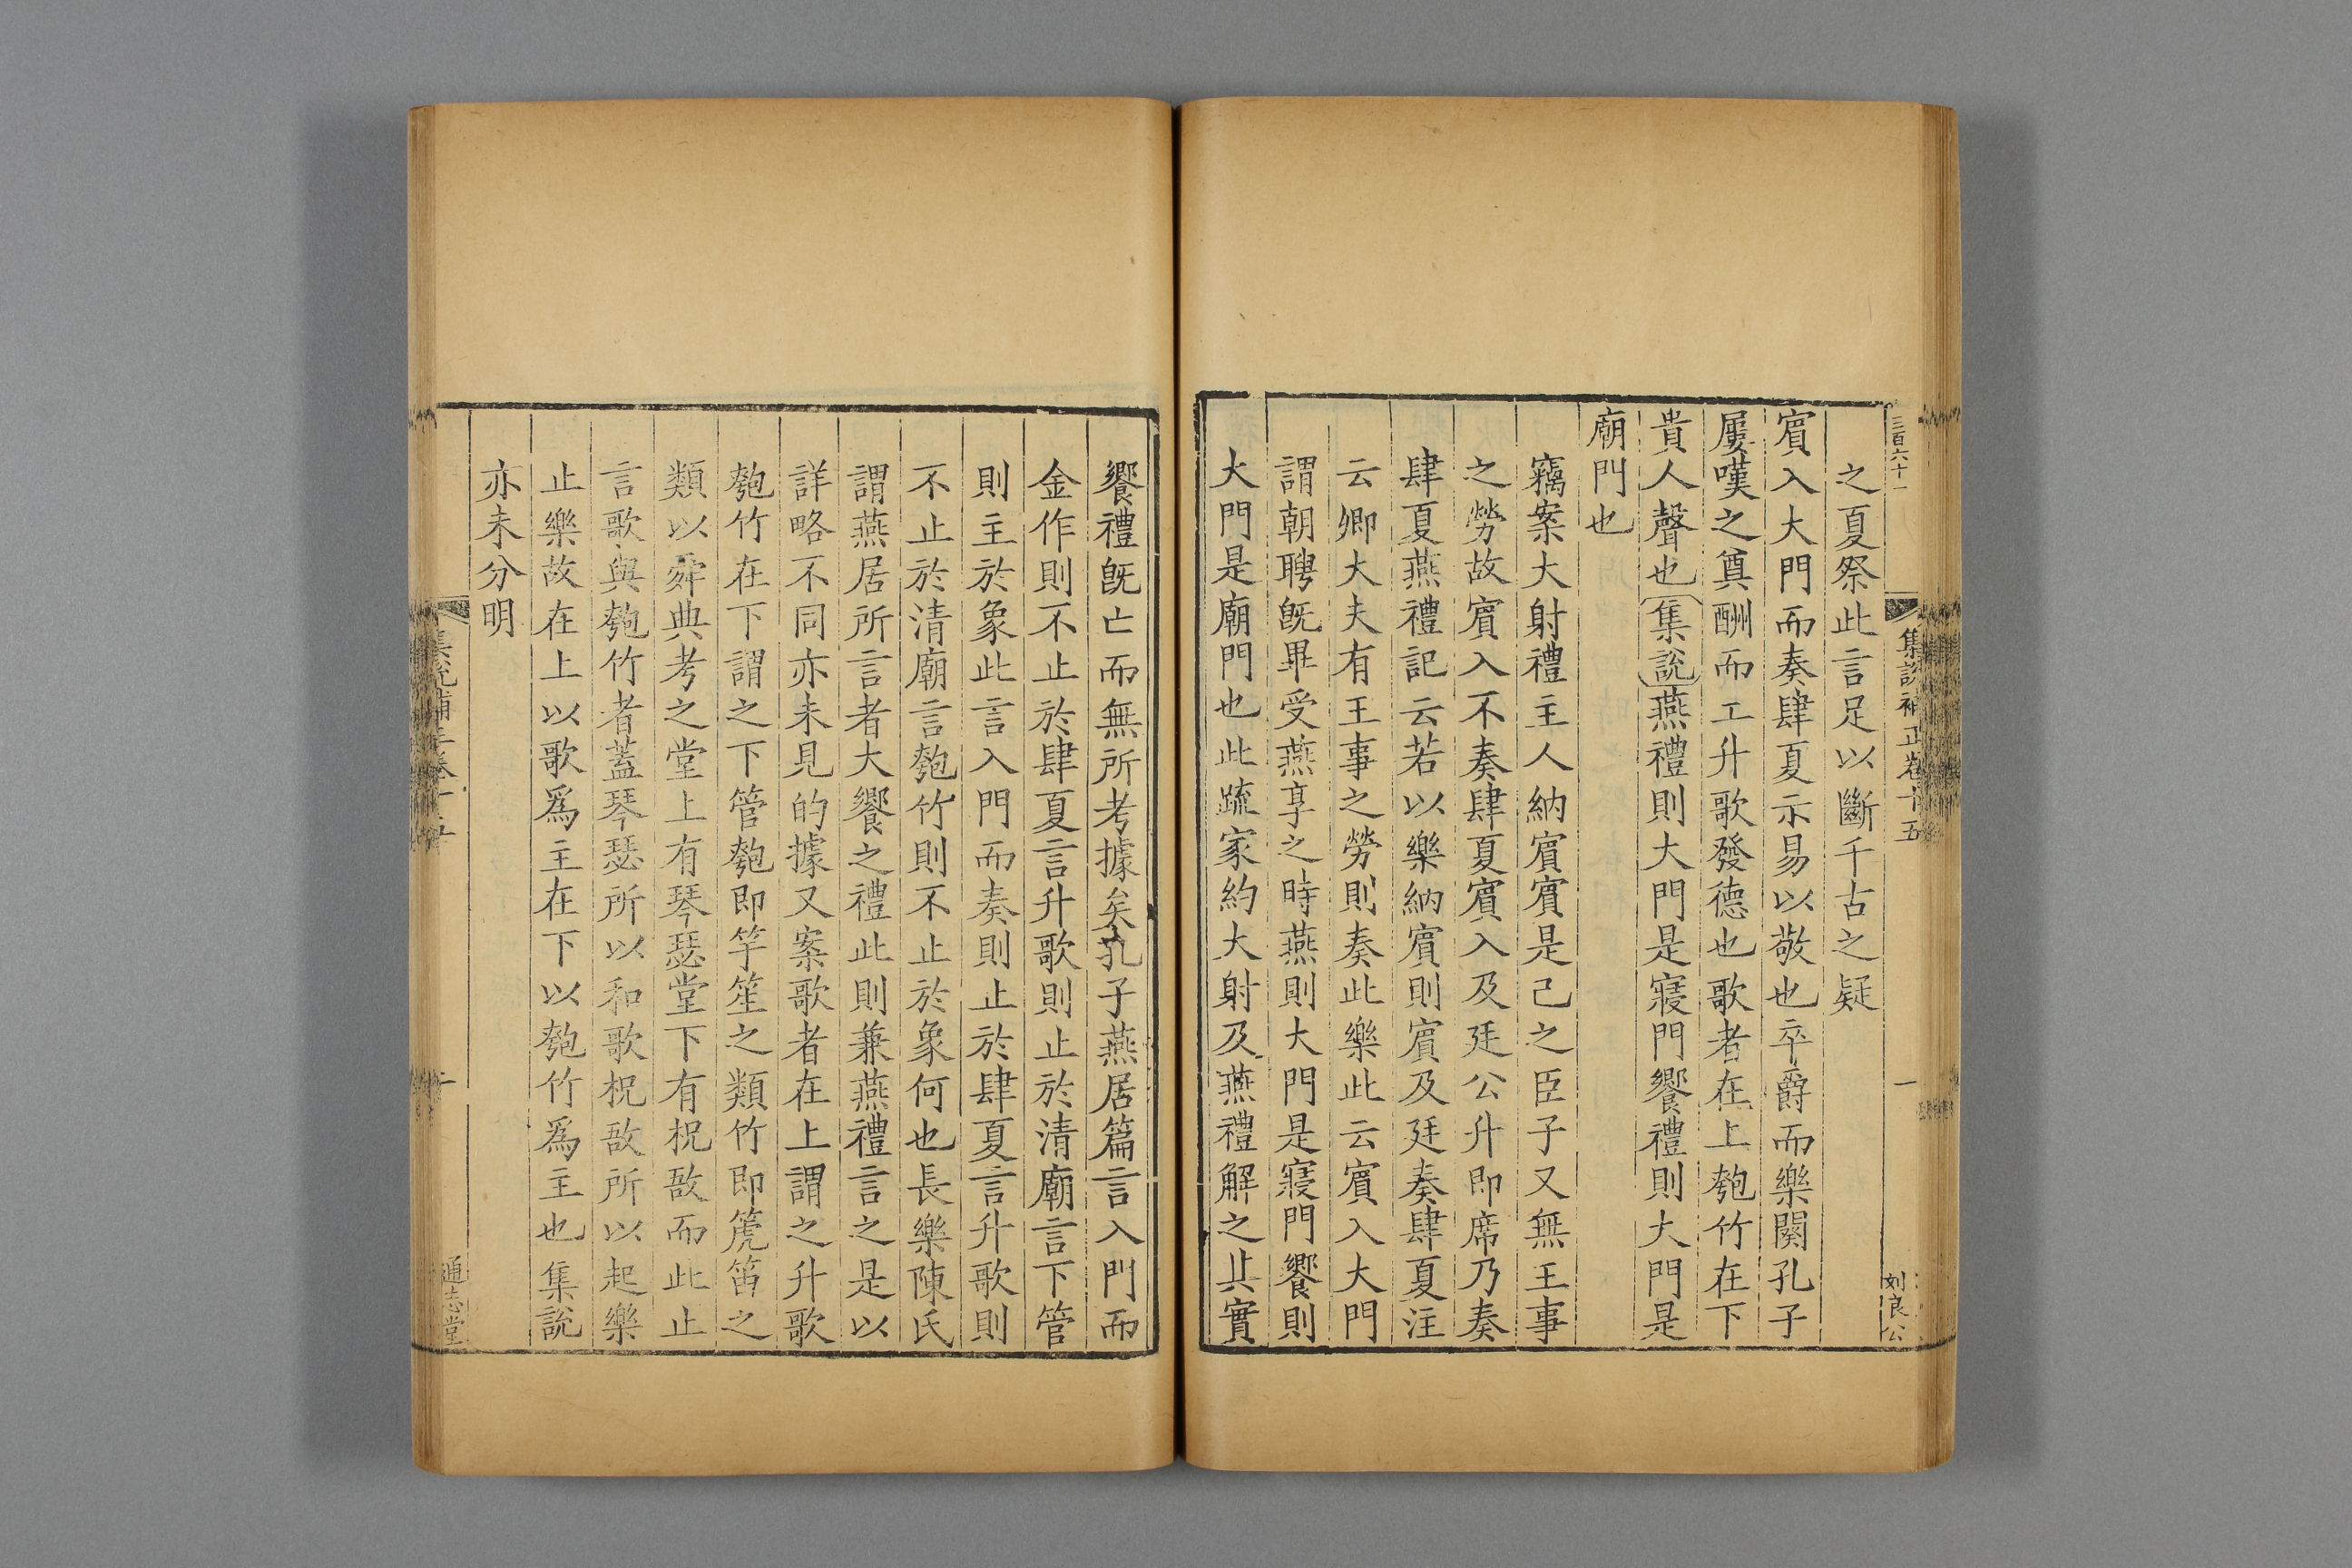 三百六十一
集說補正卷十五
一
刘良公
之夏祭此言足以斷千古之疑
賔入大門而奏肆夏示易以敬也卒爵而樂闋孔子
屢嘆之奠酬而工升歌發德也歌者在上匏竹在下
貴人聲也集說燕禮則大門是寢門饗禮則大門是
廟門也
竊案大射禮主人納賔賔是己之臣子又無王事
之勞故賔入不奏肆夏賔入及廷公升即席乃奏
肆夏燕禮記云若以樂納賔則賔及廷奏肆夏注
云卿大夫有王事之勞則奏此樂此云賔入大門
謂朝聘旣畢受燕享之時燕則大門是寢門饗則
大門是廟門也此疏家約大射及燕禮解之其實
饗禮旣亡而無所考據矣孔子燕居篇言入門而
金作則不止於肆夏言升歌則止於清廟言下管
則主於象此言入門而奏則止於肆夏言升歌則
不止於清廟言匏竹則不止於象何也長樂陳氏
謂燕居所言者大饗之禮此則兼燕禮言之是以
詳略不同亦未見的據又案歌者在上謂之升歌
匏竹在下謂之下管匏即竽笙之類竹即箎笛之
類以舜典考之堂上有琴瑟堂下有柷敔而此止
言歌與匏竹者蓋琴瑟所以和歌柷敔所以起樂
止樂故在上以歌爲主在下以匏竹爲主也集說
亦未分明
通志堂